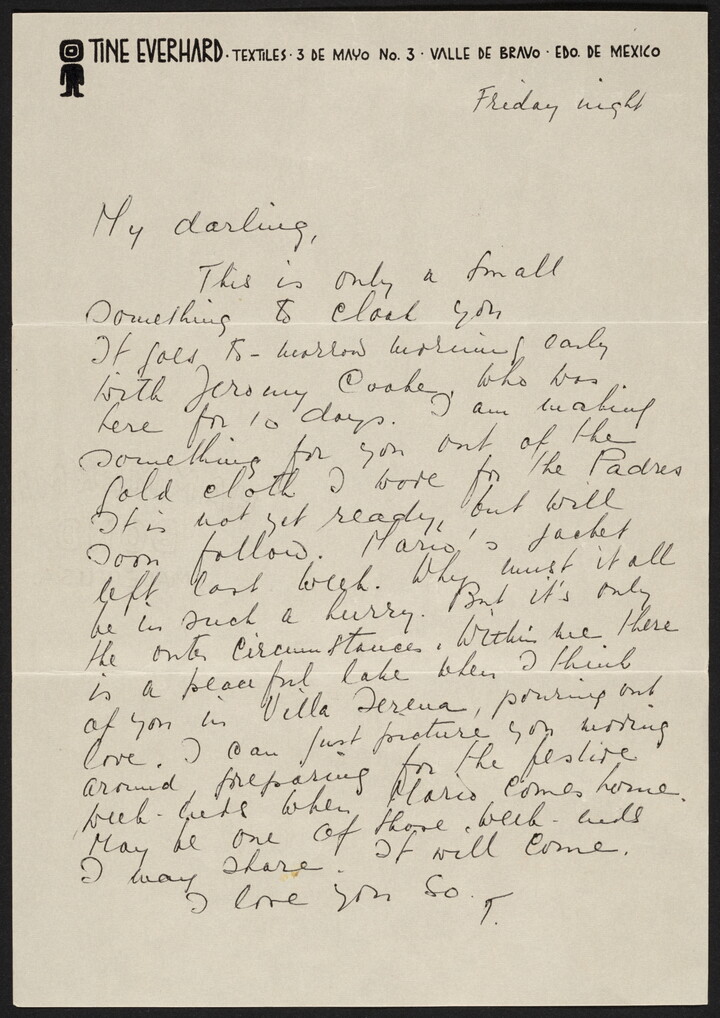 TINE EVERHARD · TEXTILES · 3 DE MAYO No. 3 · VALLE DE BRAVO · EDO. DE MEXICO
Friday night
My darling,
This is only a small
something to cloak you
It goes to-morrow morning early
with Jeromy Cooke, who was
here for 10 days. I am making
something for you out of the
gold cloth I wore for the Padres
It is not yet ready, but will
soon follow. Mario's jacket
left last week. Why must it all
be in such a hurry. But it's only
the outer circumstances. Within me there
is a peaceful lake when I think
of you in Villa Serena, pouring out
love. I can just picture you moving
around, preparing for the festive
week-ends when Mario comes home.
May be one of those week-ends
I may share. It will come.
I love you so. T.